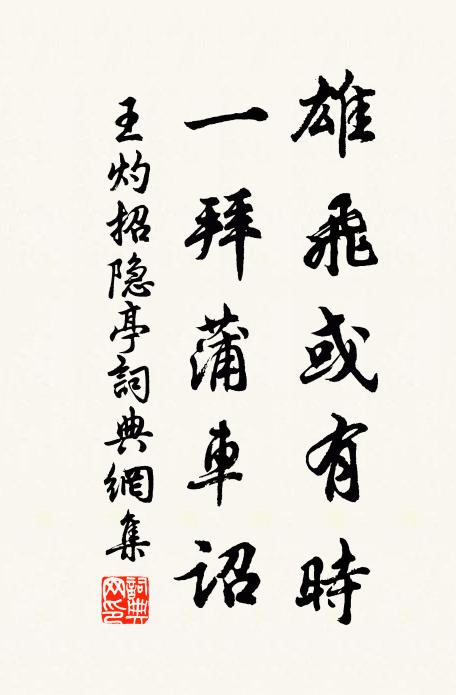 雄飛或有時
一拜蒲車詔
王灼招隐亭詞典網集
詞典網印